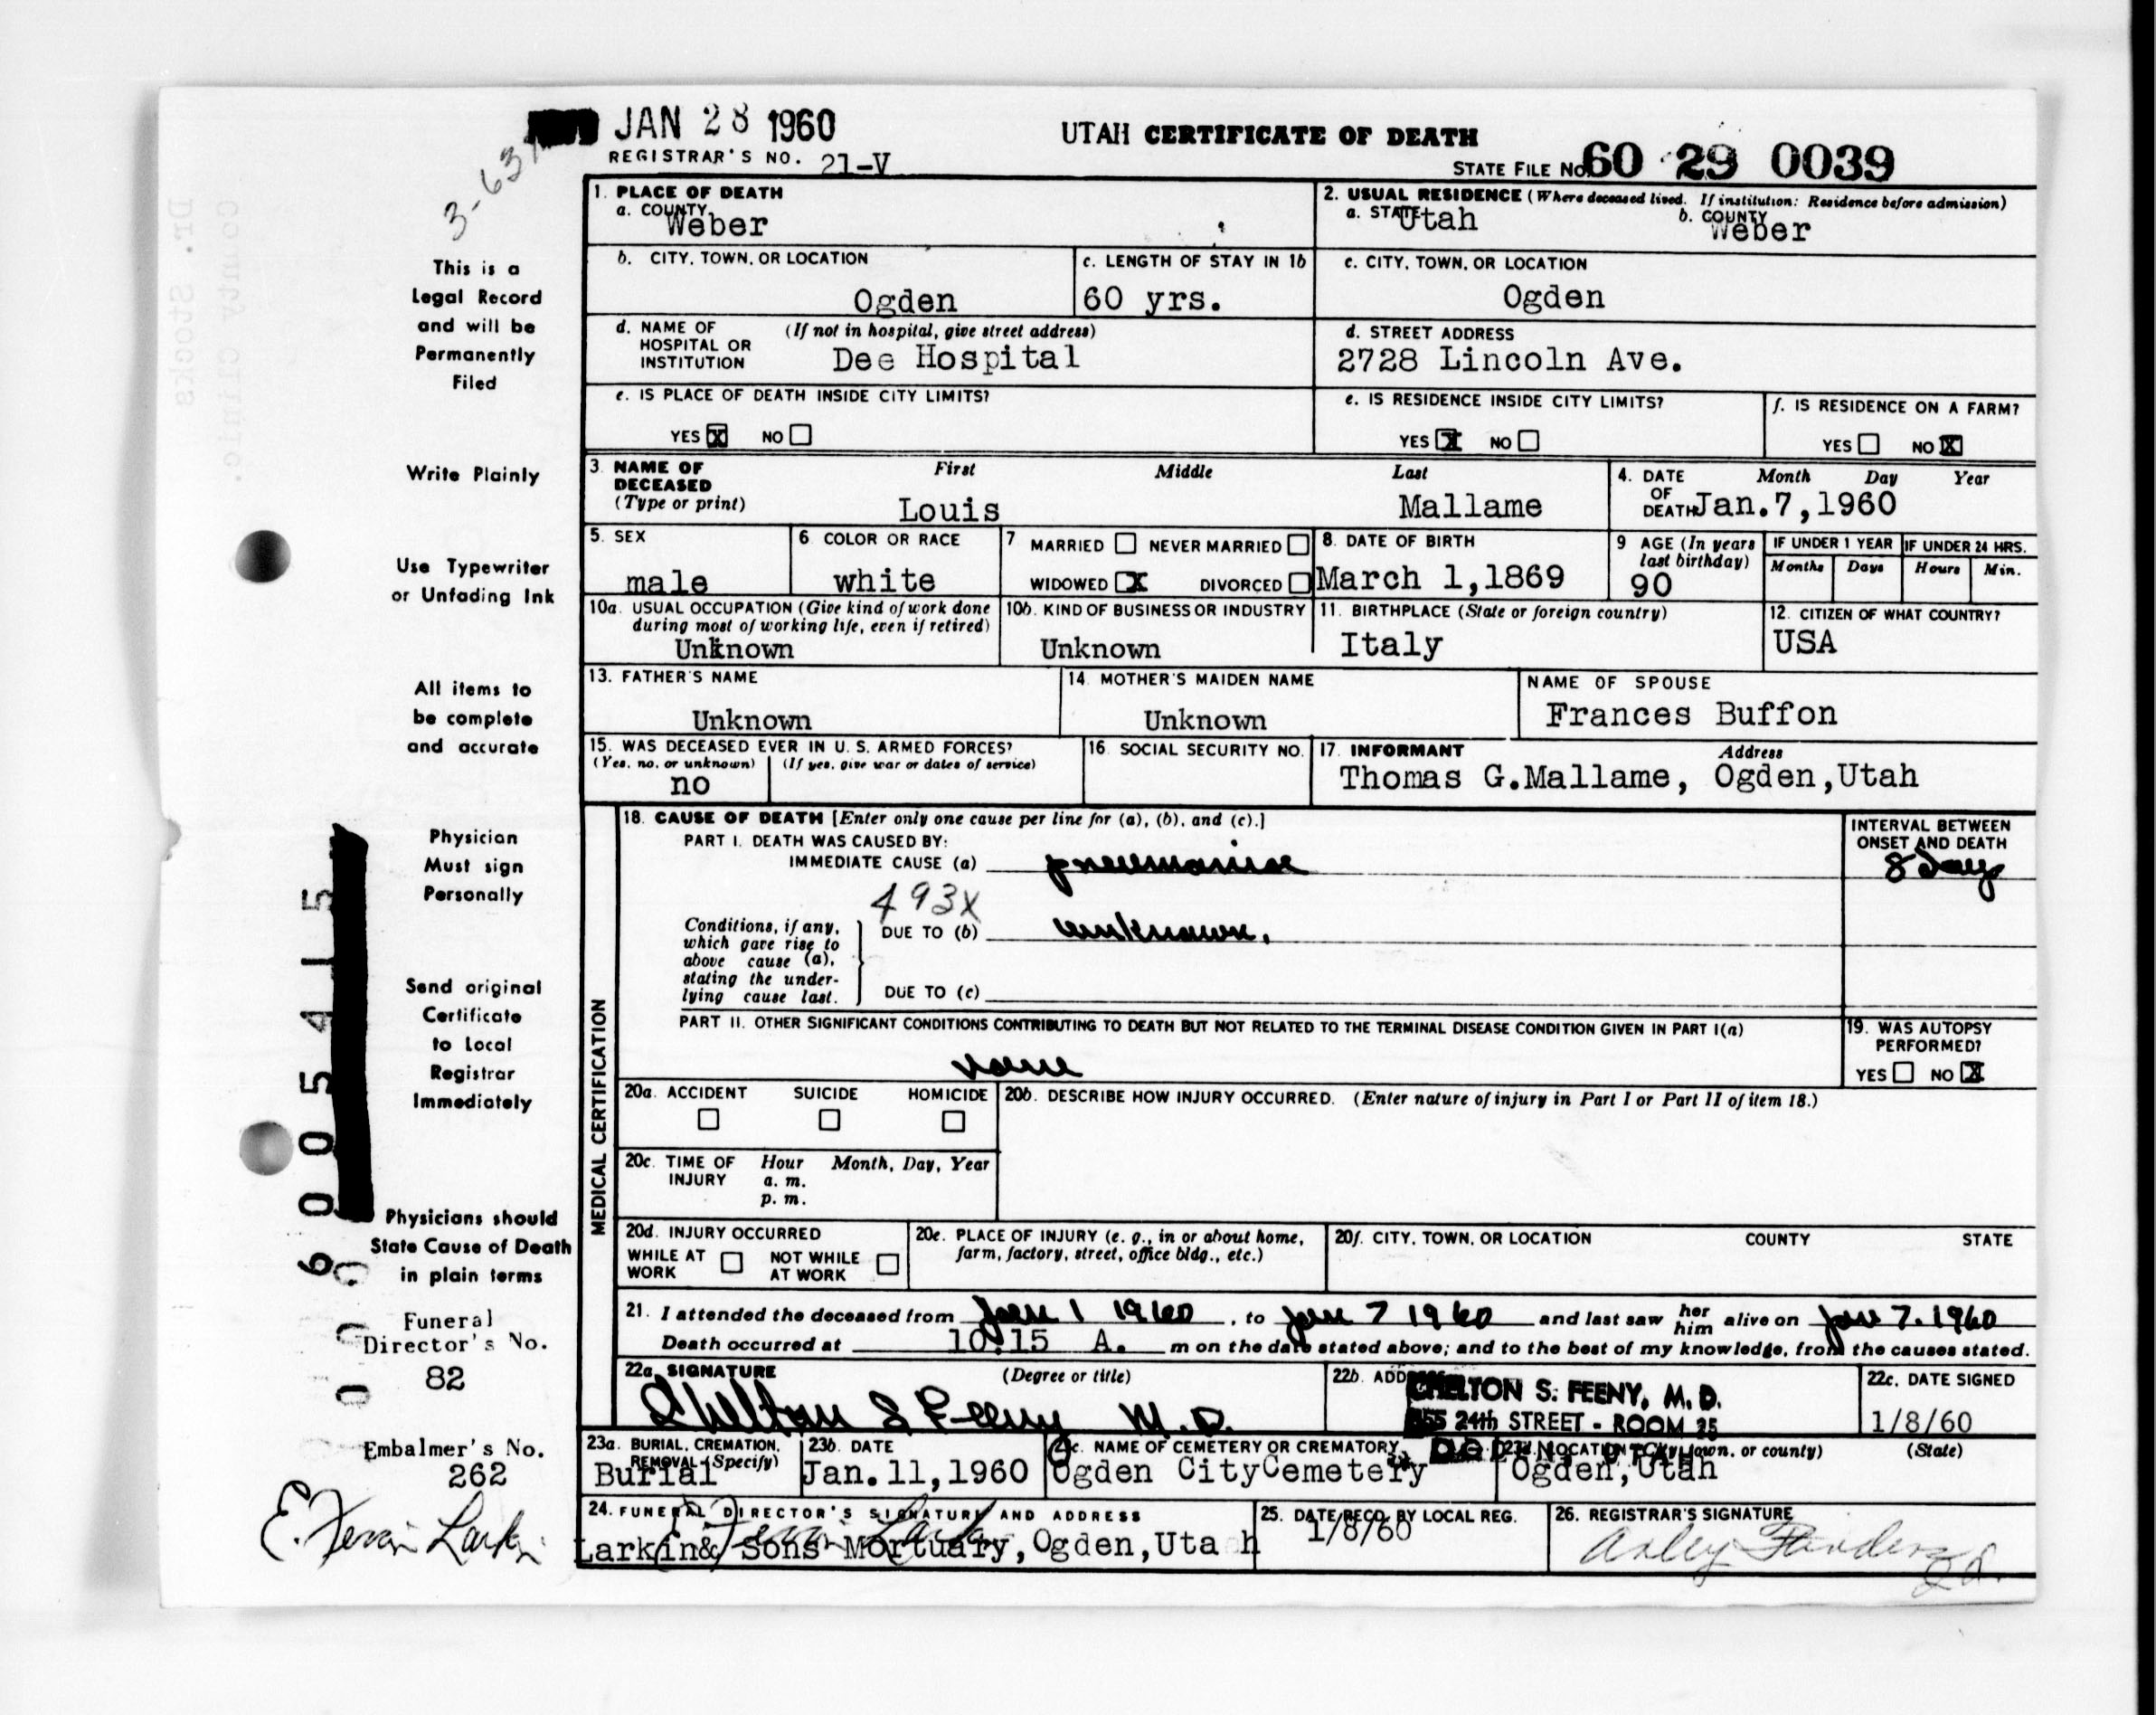 JAN 28 1960
UTAH CERTIFICATE OF DEATH
REGISTRAR'S NO. 21-V
STATE FILE No. 60 29 0039
3-63
1. PLACE OF DEATH
a. COUNTY Weber
2. USUAL RESIDENCE (Where deceased lived. If institution: Residence before admission)
a. STATE Utah b. COUNTY Weber
b. CITY, TOWN, OR LOCATION Ogden
c. LENGTH OF STAY IN 1b 60 yrs.
c. CITY, TOWN, OR LOCATION Ogden
d. NAME OF HOSPITAL OR INSTITUTION (If not in hospital, give street address) Dee Hospital
d. STREET ADDRESS 2728 Lincoln Ave.
e. IS PLACE OF DEATH INSIDE CITY LIMITS?
YES X NO
e. IS RESIDENCE INSIDE CITY LIMITS?
YES X NO
f. IS RESIDENCE ON A FARM?
YES NO X
3. NAME OF DECEASED (Type or print) First Middle Last
Louis Mallame
4. DATE OF DEATH Month Day Year
Jan.7,1960
5. SEX male
6 COLOR OR RACE white
7 MARRIED NEVER MARRIED
WIDOWED X DIVORCED
8. DATE OF BIRTH March 1,1869
9 AGE (In years last birthday) 90
IF UNDER 1 YEAR Months Days
IF UNDER 24 HRS. Hours Min.
10a. USUAL OCCUPATION (Give kind of work done during most of working life, even if retired) Unknown
10b. KIND OF BUSINESS OR INDUSTRY Unknown
11. BIRTHPLACE (State or foreign country) Italy
12. CITIZEN OF WHAT COUNTRY? USA
13. FATHER'S NAME Unknown
14. MOTHER'S MAIDEN NAME Unknown
NAME OF SPOUSE Frances Buffon
15. WAS DECEASED EVER IN U. S. ARMED FORCES?
(Yes, no, or unknown) (If yes, give war or dates of service)
no
16. SOCIAL SECURITY NO.
17. INFORMANT Address
Thomas G.Mallame, Ogden,Utah
MEDICAL CERTIFICATION
18. CAUSE OF DEATH [Enter only one cause per line for (a), (b), and (c).]
PART I. DEATH WAS CAUSED BY:
IMMEDIATE CAUSE (a) pneumonia
INTERVAL BETWEEN ONSET AND DEATH
8 days
493X
Conditions, if any, which gave rise to above cause (a), stating the underlying cause last.
DUE TO (b) unknown.
DUE TO (c)
PART II. OTHER SIGNIFICANT CONDITIONS CONTRIBUTING TO DEATH BUT NOT RELATED TO THE TERMINAL DISEASE CONDITION GIVEN IN PART I(a)
none
19. WAS AUTOPSY PERFORMED?
YES NO X
20a. ACCIDENT SUICIDE HOMICIDE
20b. DESCRIBE HOW INJURY OCCURRED. (Enter nature of injury in Part I or Part II of item 18.)
20c. TIME OF INJURY Hour Month, Day, Year
a. m.
p. m.
20d. INJURY OCCURRED
WHILE AT WORK NOT WHILE AT WORK
20e. PLACE OF INJURY (e. g., in or about home, farm, factory, street, office bldg., etc.)
20f. CITY, TOWN, OR LOCATION COUNTY STATE
21. I attended the deceased from Jan 1 1960, to Jan 7 1960 and last saw her him alive on Jan 7. 1960
Death occurred at 10:15 A. m on the date stated above; and to the best of my knowledge, from the causes stated.
22a. SIGNATURE (Degree or title)
Shelton S Feeny M.D.
22b. ADDRESS
SHELTON S. FEENY, M. D.
955 24th STREET - ROOM 25
OGDEN, UTAH
22c. DATE SIGNED 1/8/60
23a. BURIAL, CREMATION, REMOVAL (Specify) Burial
23b. DATE Jan. 11,1960
23c. NAME OF CEMETERY OR CREMATORY Ogden CityCemetery
23d. LOCATION (City, town, or county) (State)
Ogden,Utah
24. FUNERAL DIRECTOR'S SIGNATURE AND ADDRESS
Larkin& Sons Mortuary,Ogden,Uta h
25. DATE RECD. BY LOCAL REG. 1/8/60
26. REGISTRAR'S SIGNATURE
This is a
Legal Record
and will be
Permanently
Filed
Write Plainly
Use Typewriter
or Unfading Ink
All items to
be complete
and accurate
Physician
Must sign
Personally
Send original
Certificate
to Local
Registrar
Immediately
Physicians should
State Cause of Death
in plain terms
Funeral
Director's No.
82
Embalmer's No.
262
E. Fervin Larkin
6005415
Dr. Stocks
County Clinic.